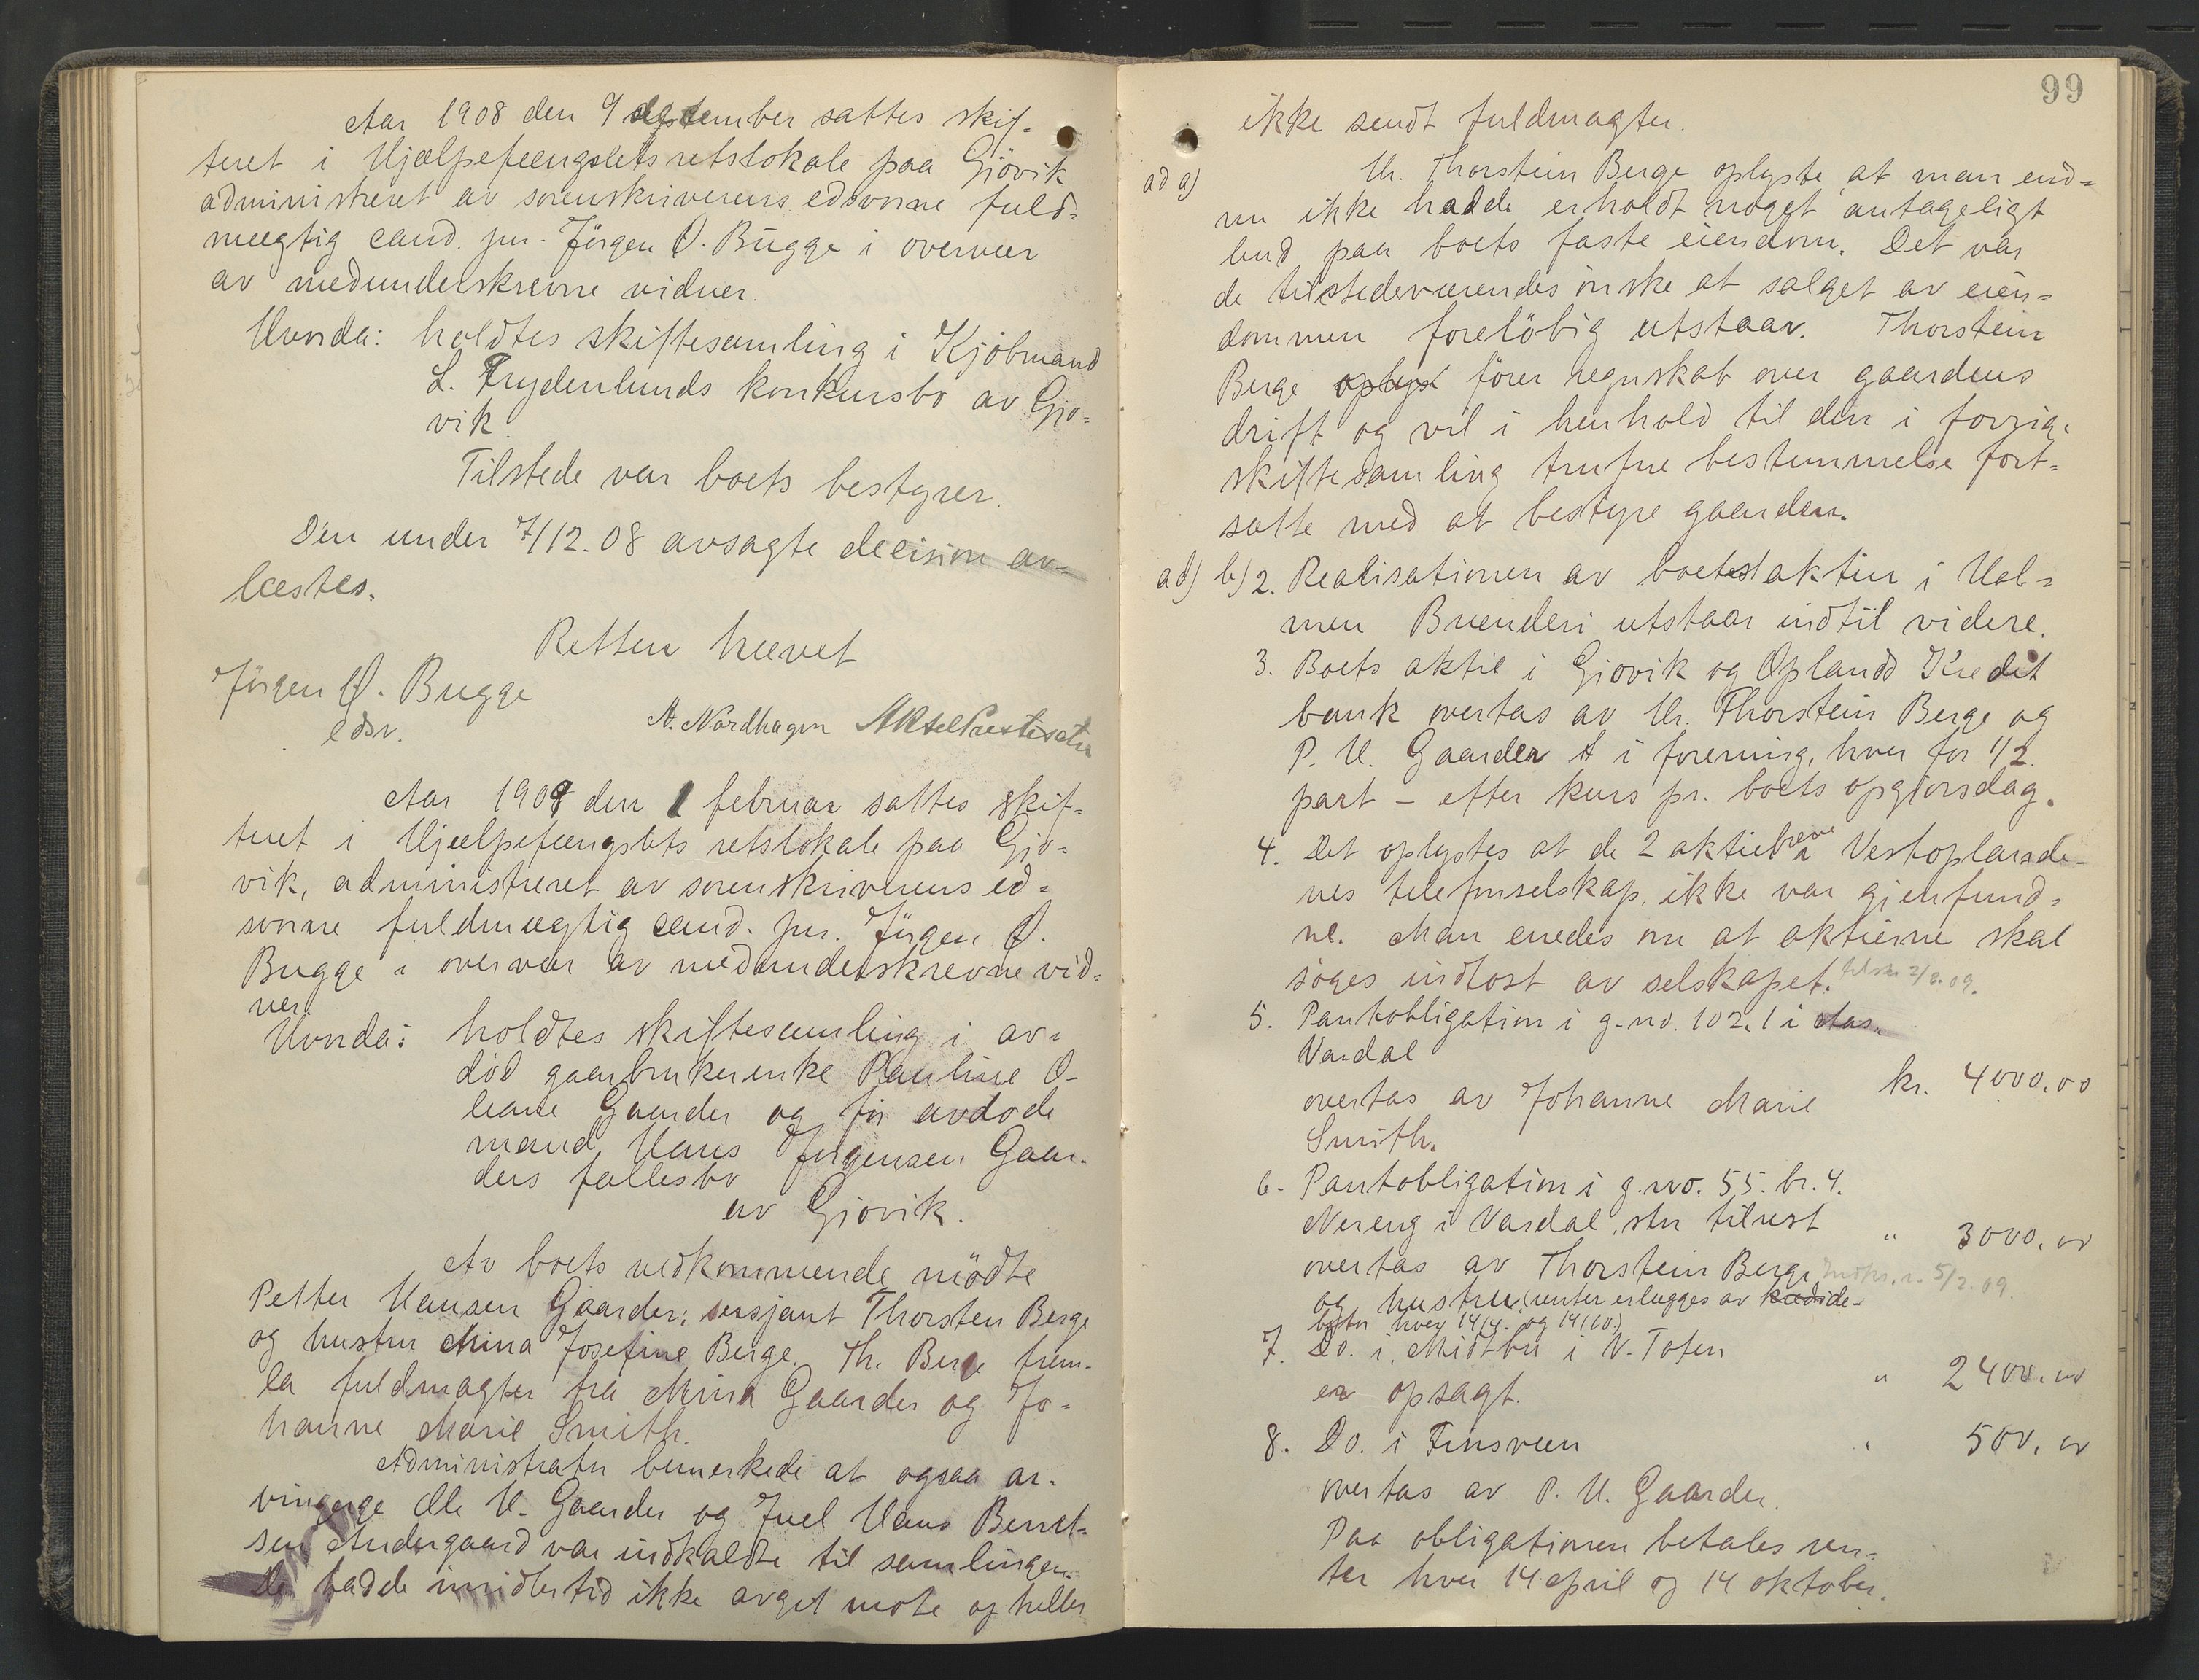 Aar 1908 den 9 desember sattes skif-
teret i Hjælpefængslets retslokale paa Gjövik
administreret av sorenskriverens edsvorne fuld-
mægtig cand. jur. Jörgen Ø. Bugge i overvær
av medunderskrevne vidner.
Hvorda: holdtes skiftesamling i Kjöbmand
L. Frydenlunds konkursbo av Gjö-
vik.
Tilstede var boets bestyrer.
Den under 7/12.08 avsagte decision av-
læstes.
Retten hævet
Jörgen Ø. Bugge
edsv.
A. Nordhagen Aksel Prestesæter
Aar 1909 den 1 februar sattes skif-
teret i Hjælpefængslets retslokale paa Gjö-
vik, administreret av sorenskriverens ed-
svorne fuldmægtig cand. jur. Jörgen Ø.
Bugge i overvær av medunderskrevne vid-
ner.
Hvorda: holdtes skiftesamling i av-
död gaarbrukerenke Pauline O-
leane Gaarder og för avdöde
mand Hans Jörgensen Gaar-
ders fællesbo
av Gjövik.
Av boets vedkommende mödte
Petter Hansen Gaarder, sersjant Thorsten Berge
og hustru Mina Josefine Berge. Th. Berge frem-
la fuldmagter fra Mina Gaarder og Jo-
hanne Marie Smith.
Administrator bemerkede at ogsaa ar-
vingerge Ole H. Gaarder og Juel Hans Bernt-
sen Andergaard var indkaldte til samlingen.
De hadde imidlertid ikke avget möte og heller
99
ikke sendt fuldmagter.
ad a) Hr. Thorstein Berge oplyste at man end-
nu ikke hadde erholdt noget antageligt
bud paa boets faste eiendom. Det var
de tilstedeværendes önske at salget av eien-
dommen foreløbig utstaar. Thorstein
Berge oplyst förer regnskab over gaardens
drift og vil i henhold til den i forrige
skiftesamling trufne bestemmelse fort-
satte med at bestyre gaarden.
ad) b) 2. Realisationen av boets aktier i Hol-
men Brænderi utstaar indtil videre.
3. Boets aktie i Gjövik og Oplands Kredit
bank overtas av Hr. Thorstein Berge og
P. H. Gaarder i forening, hver for 1/2
part - efter kurs pr. boets opgjörsdag.
4. Det oplystes at de 2 aktiebreve i Vestoplande-
nes telefonselskap, ikke var gjenfund-
ne. Man enedes om at aktierne skal
söges indlöst av selskapet. 2/8.09.
5. Pantobligation i g.no. 102.1 i Aas.
Vardal
overtas av Johanne Marie kr. 4000.00
Smith.
6. Pantobligation i g.no. 55. br. 4.
Nereng i Vardal, stor tilrest " 3000.00
overtas av Thorstein Berge 5/2.09.
og hustru, (renter erlægges av kredide-
bitor hver 14/4. og 14/10.)
7. Do. i Midtbu i V. Toten " 2400.00
er opsagt.
8. Do. i Finsveen " 500.00
overtas av P. H. Gaarder.
Paa obligationen betales ren-
ter hver 14 april og 14 oktober.